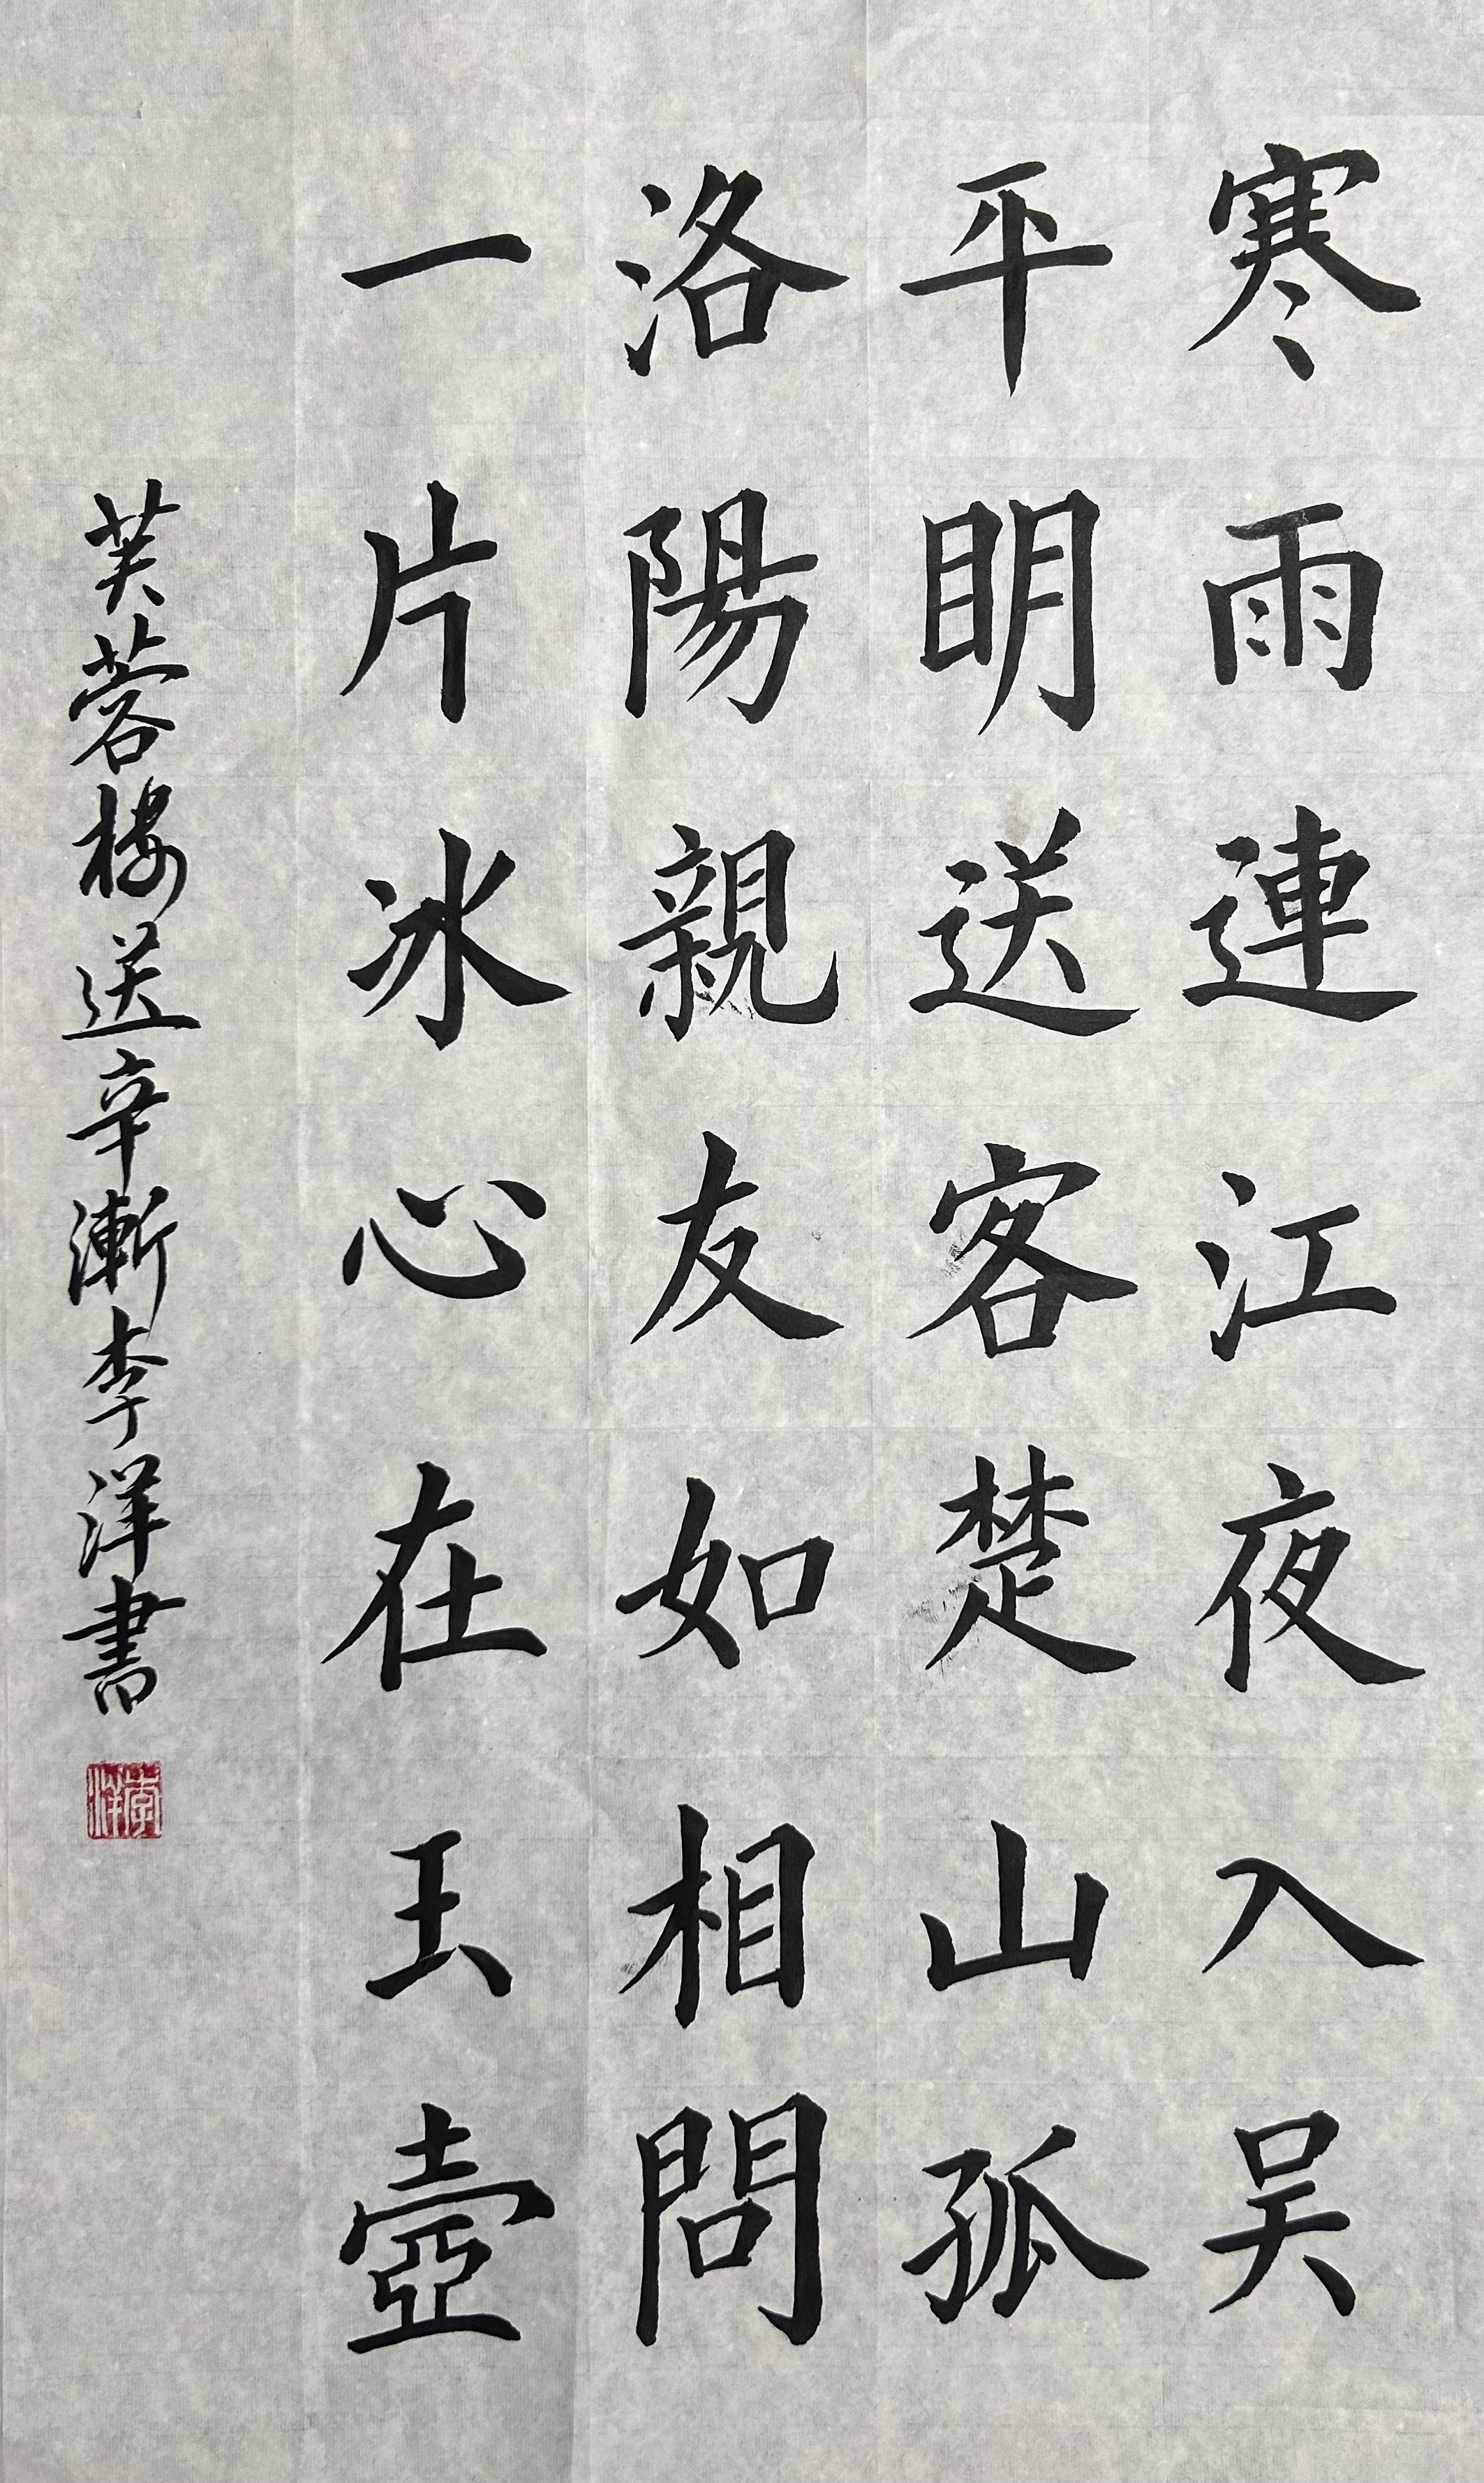 寒雨連江夜入吴
平明送客楚山孤
洛陽親友如相問
一片冰心在玉壺
芙蓉楼送辛漸李洋書
李洋